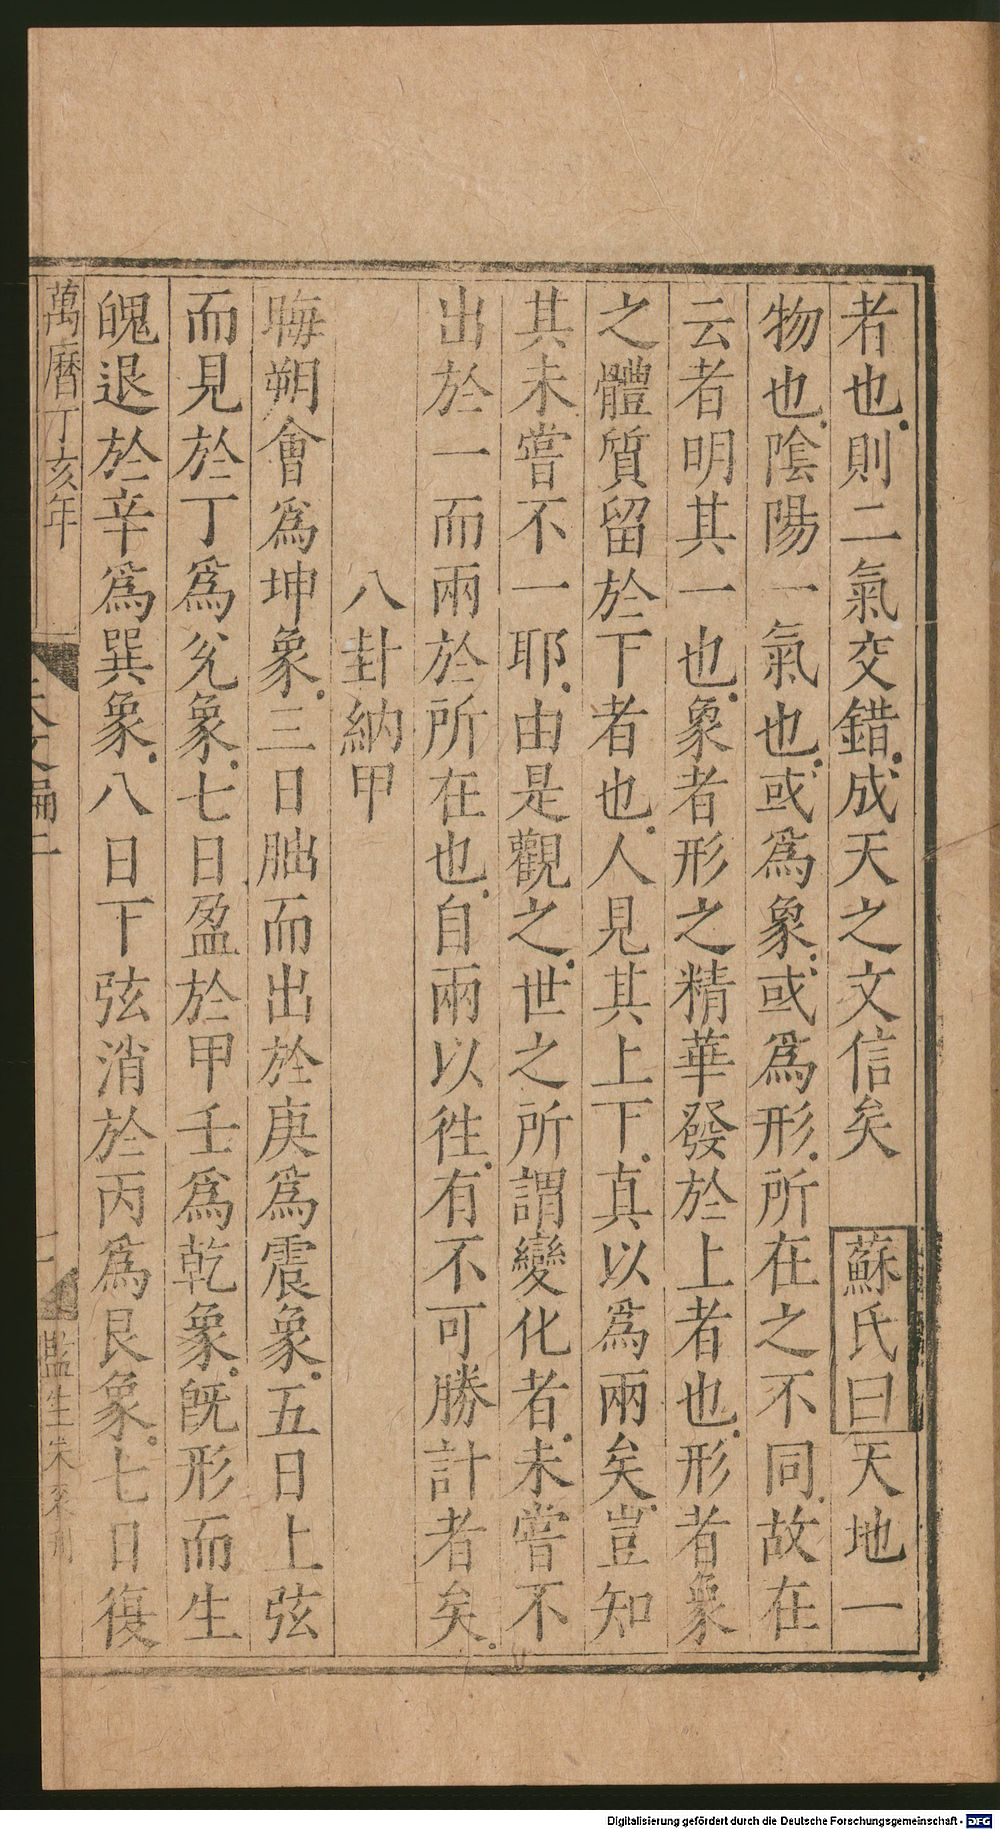 者也則二氣交錯成天之文信矣　蘇氏曰天地一
物也陰陽一氣也或爲象或爲形所在之不同故在
云者明其一也象者形之精華發於上者也形者象
之體質留於下者也人見其上下真以爲兩矣豈知
其未嘗不一耶由是觀之世之所謂變化者未嘗不
出於一而兩於所在也自兩以徃有不可勝計者矣
八卦納甲
晦朔會爲坤象三日朏而出於庚爲震象五日上弦
而見於丁爲兊象七日盈於甲壬爲乾象旣形而生
魄退於辛爲巽象八日下弦消於丙爲艮象七日復
萬曆丁亥年
天文編二
監生朱
Digitalisierung gefördert durch die Deutsche Forschungsgemeinschaft - DFG